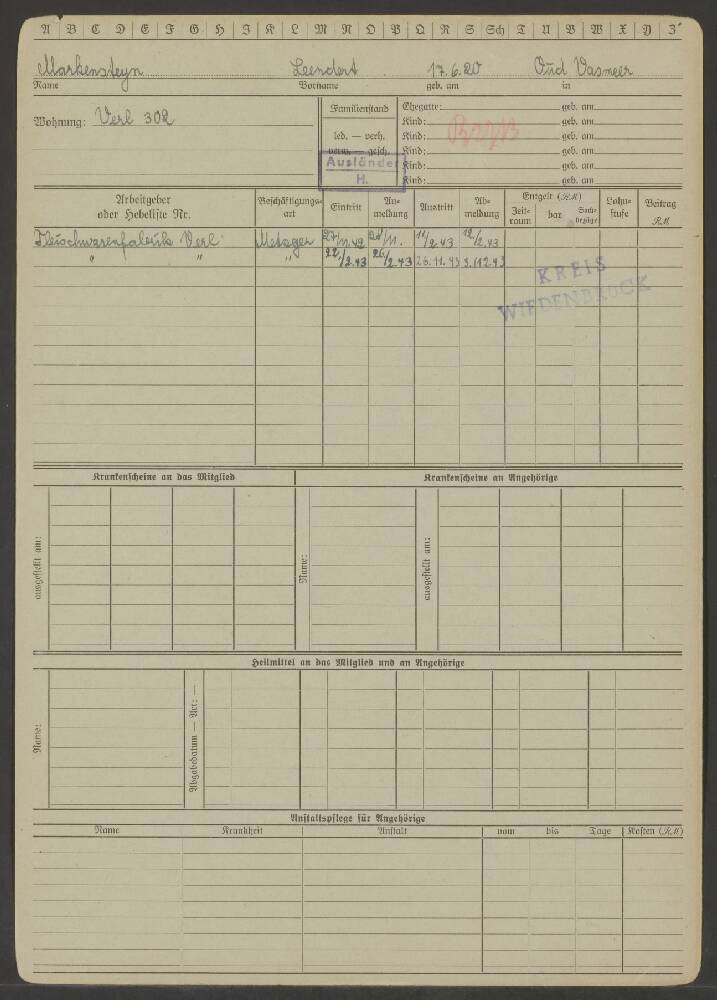 A B C D E F G H I K L M N O P Q R S Sch T U V W X Y Z
Markensteyn Leendert 17.6.20 Oud Vasmeer
Name Vorname geb. am in
Wohnung: Verl 302
Familienstand
led. — verh.
verw. — gesch.
Ausländer
H.
Ehegatte: geb. am
Kind: geb. am
Kind: geb. am
Kind: geb. am
Kind: geb. am
Kind: geb. am
Arbeitgeber oder Hebeliste Nr.
Beschäftigungsart
Eintritt
Anmeldung
Austritt
Abmeldung
Entgelt (RM)
Zeitraum
bar
Sachbezüge
Lohnstufe
Beitrag RM
Fleischwarenfabrik Verl Metzger 27/11.42 28/11. 11/2.43 12/2.43
" " " 22./2.43 26/2.43 26.11.43 3./12.43
KREIS
WIEDENBRÜCK
Krankenscheine an das Mitglied
Krankenscheine an Angehörige
ausgestellt am:
Name:
ausgestellt am:
Heilmittel an das Mitglied und an Angehörige
Name:
Abgabedatum — Art: —
Anstaltspflege für Angehörige
Name Krankheit Anstalt vom bis Tage Kosten (RM)